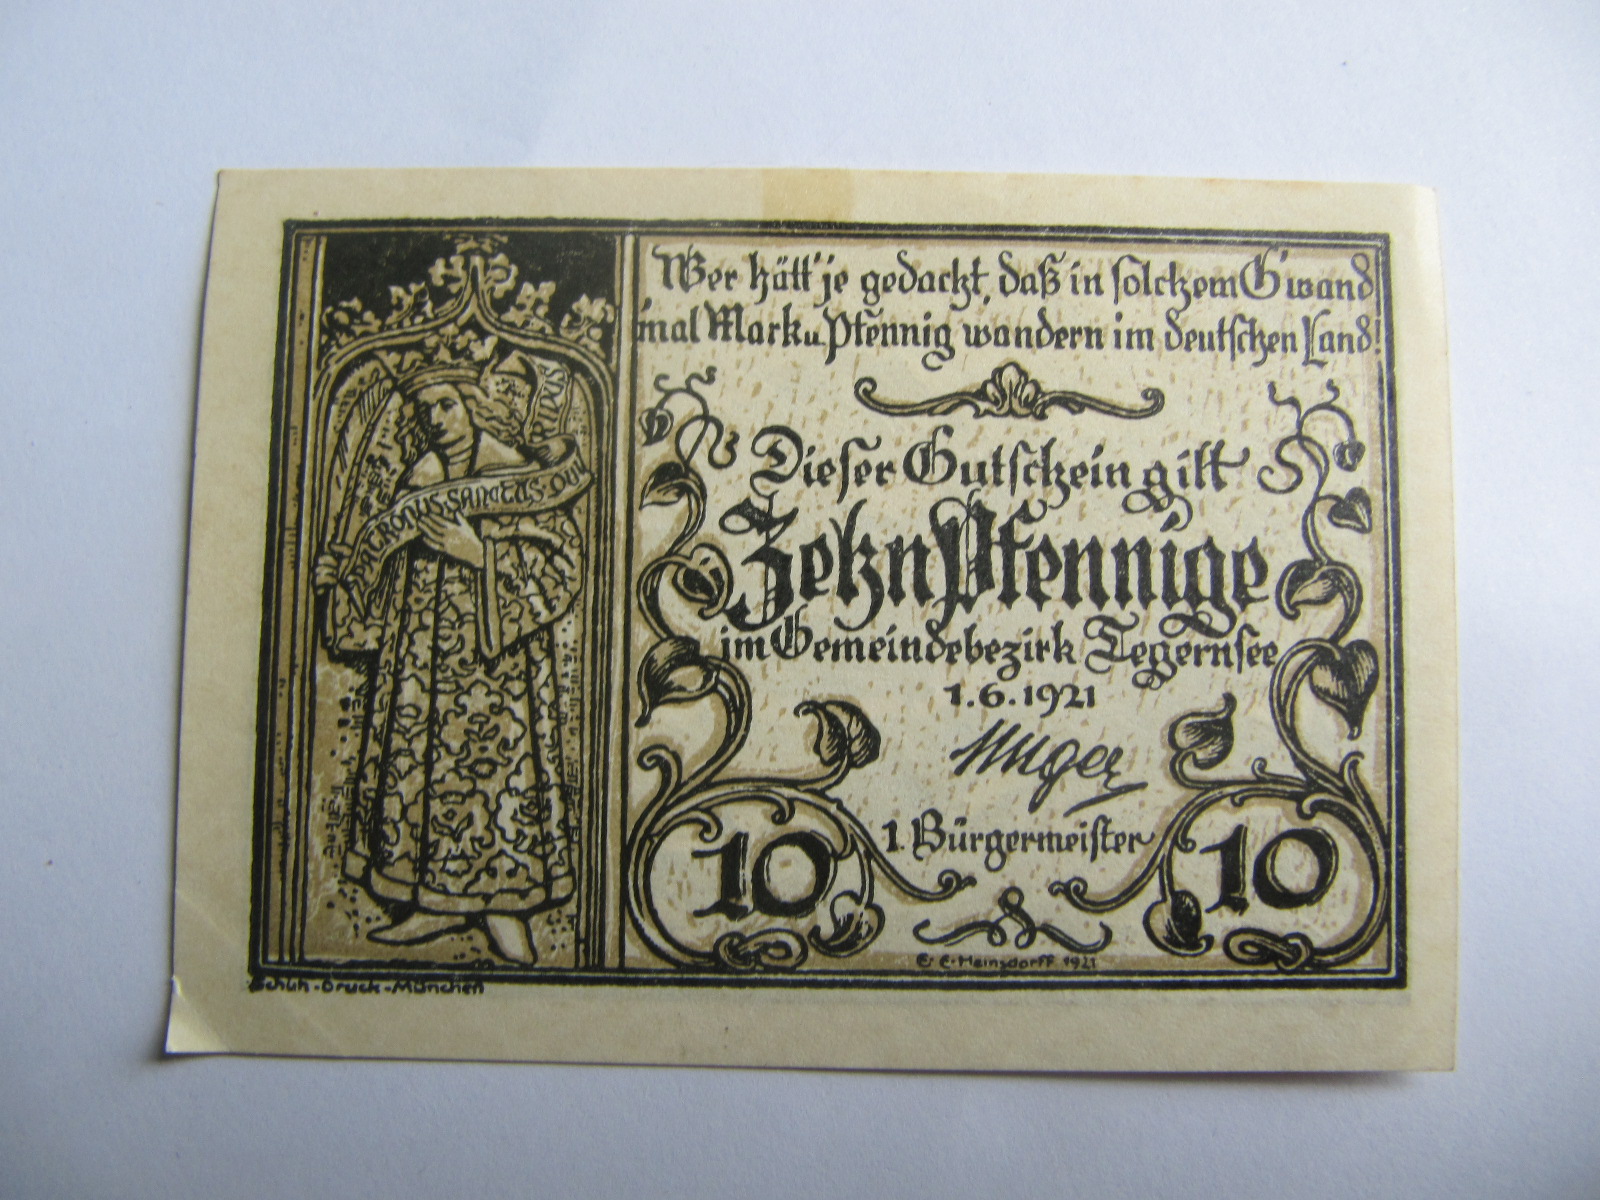 Wer hätt' je gedacht, daß in solchem G'wand
'mal Mark u. Pfennig wandern im deutschen Land!
Dieser Gutschein gilt
Zehn Pfennige
im Gemeindebezirk Tegernsee
1.6.1921
1. Bürgermeister
10 10
PATRONUS·SANCTUS·QUI
RINUS
E. E. Heinsdorff 1921
-Druck-München